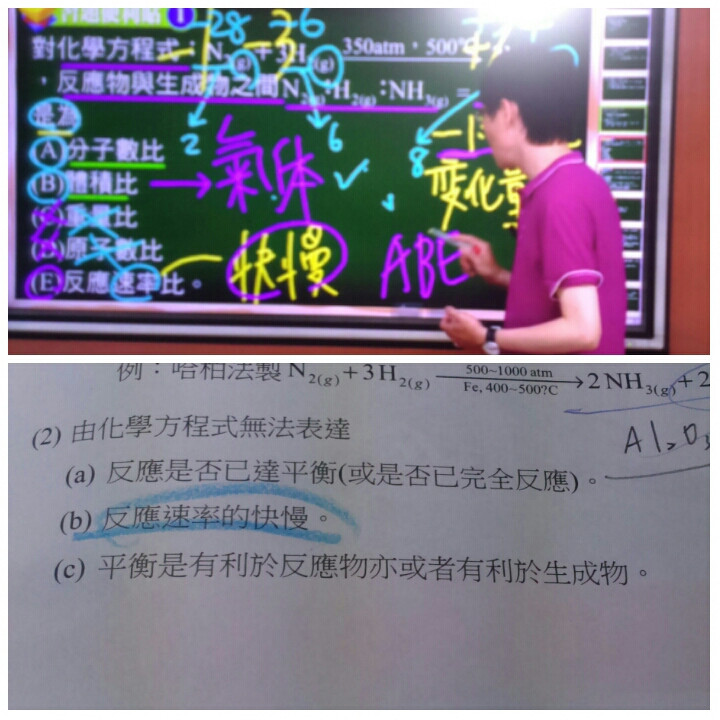 對化學方程式 N2(g)+3H2(g) 350atm,500℃
,反應物與生成物之間N2(g):H2(g):NH3(g)=
是為
(A)分子數比
(B)體積比 → 氣体 ✓
(C)重量比
(D)原子數比
(E)反應速率比。 快慢 ABE
28 36
2 6 8
变化
例:哈柏法製 N2(g)+3H2(g) 500~1000 atm Fe, 400~500?C → 2 NH3(g)+2
(2) 由化學方程式無法表達
Al2O3
(a) 反應是否已達平衡(或是否已完全反應)。
(b) 反應速率的快慢。
(c) 平衡是有利於反應物亦或者有利於生成物。